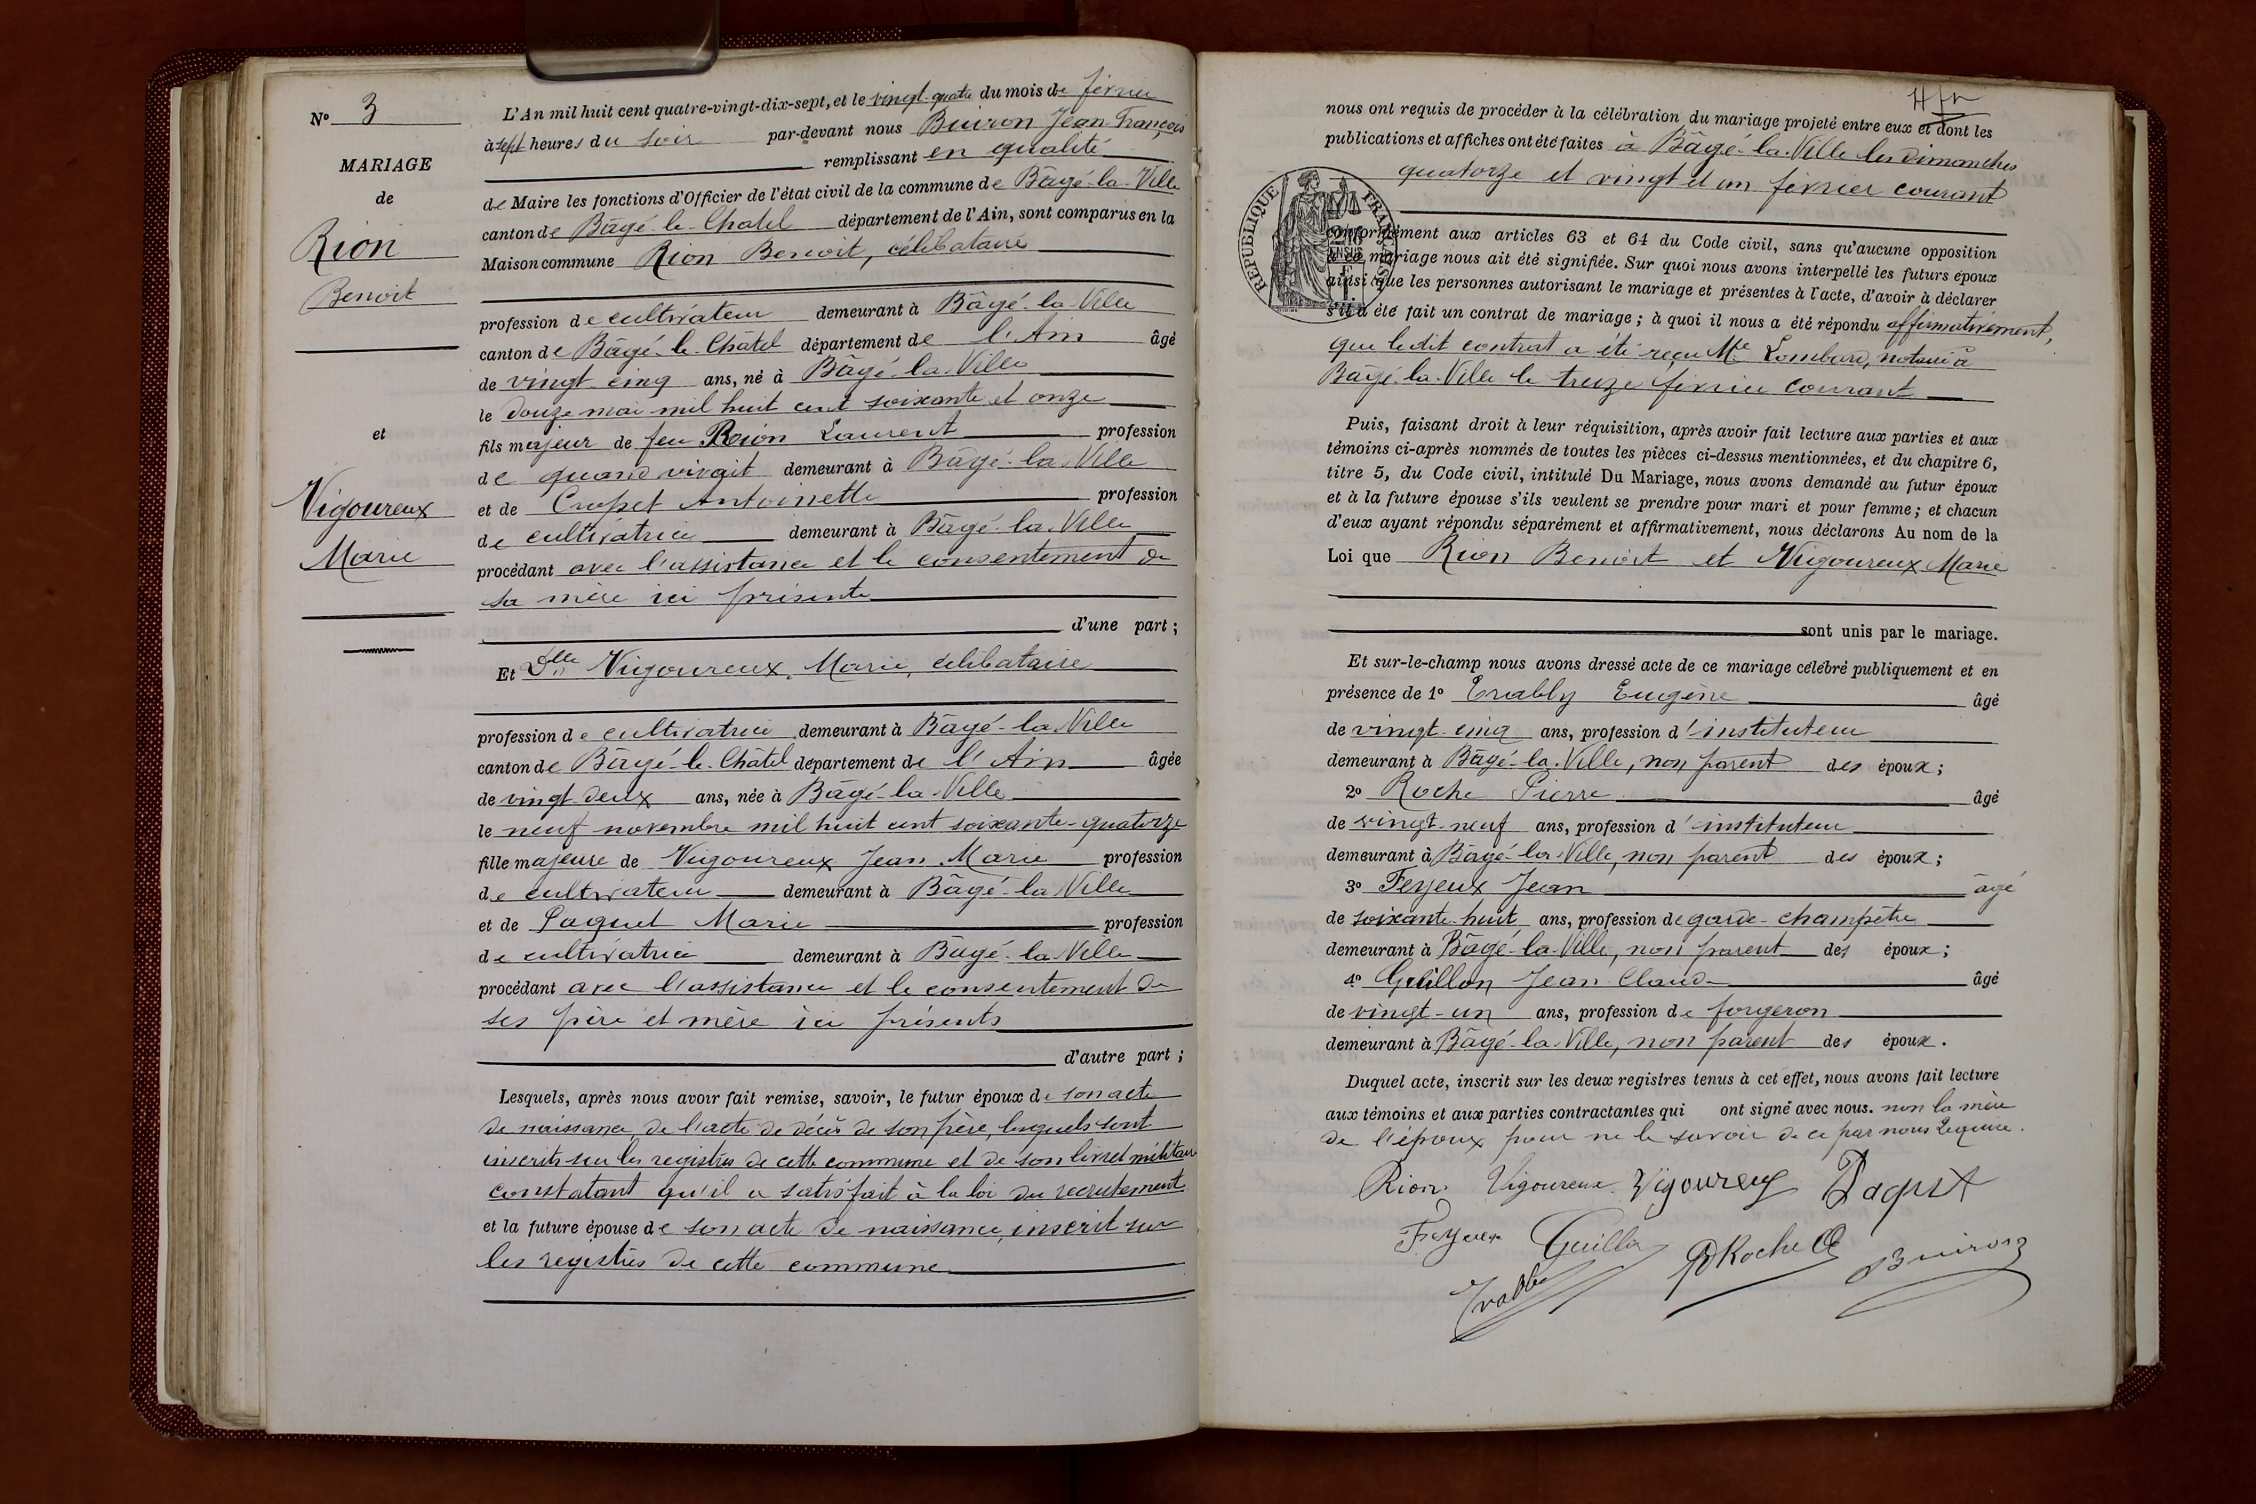 N° 3
MARIAGE
de
Rion
Benoit
et
Vigoureux
Marie
L'An mil huit cent quatre-vingt-dix-sept, et le vingt-quatre du mois de février
à sept heures du soir par-devant nous Buiron Jean-François
remplissant en qualité
de Maire les fonctions d'Officier de l'état civil de la commune de Bâgé-la-Ville
canton de Bâgé-le-Chatel département de l'Ain, sont comparus en la
Maison commune Rion Benoit, célibataire
profession de cultivateur demeurant à Bâgé-la-Ville
canton de Bâgé-le-Châtel département de l'Ain âgé
de vingt-cinq ans, né à Bâgé-la-Ville
le douze mai mil huit cent soixante et onze
fils majeur de feu Rion Laurent profession
de quand vivait demeurant à Bâgé-la-Ville
et de Antoinette profession
de cultivatrice demeurant à Bâgé-la-Ville
procédant avec l'assistance et le consentement de
sa mère ici présente
d'une part;
Et Dlle Vigoureux, Marie, célibataire
profession de cultivatrice demeurant à Bâgé-la-Ville
canton de Bâgé-le-Châtel département de l'Ain âgée
de vingt-deux ans, née à Bâgé-la-Ville
le neuf novembre mil huit cent soixante-quatorze
fille majeure de Vigoureux Jean Marie profession
de cultivateur demeurant à Bâgé-la-Ville
et de Paquet Marie profession
de cultivatrice demeurant à Bâgé-la-Ville
procédant avec l'assistance et le consentement de
ses père et mère ici présents
d'autre part;
Lesquels, après nous avoir fait remise, savoir, le futur époux de son acte
de naissance, de l'acte de décès de son père, lesquels sont
inscrits sur les registres de cette commune et de son livret militaire
constatant qu'il a satisfait à la loi du recrutement
et la future épouse de son acte de naissance, inscrit sur
les registres de cette commune
nous ont requis de procéder à la célébration du mariage projeté entre eux et dont les
publications et affiches ont été faites à Bâgé-la-Ville les dimanches
quatorze et vingt et un février courant
REPUBLIQUE FRANÇAISE
conformément aux articles 63 et 64 du Code civil, sans qu'aucune opposition
à ce mariage nous ait été signifiée. Sur quoi nous avons interpellé les futurs époux
ainsi que les personnes autorisant le mariage et présentes à l'acte, d'avoir à déclarer
s'il a été fait un contrat de mariage; à quoi il nous a été répondu affirmativement,
que ledit contrat a été reçu Me Lombard, notaire à
Bâgé-la-Ville le treize février courant
Puis, faisant droit à leur réquisition, après avoir fait lecture aux parties et aux
témoins ci-après nommés de toutes les pièces ci-dessus mentionnées, et du chapitre 6,
titre 5, du Code civil, intitulé Du Mariage, nous avons demandé au futur époux
et à la future épouse s'ils veulent se prendre pour mari et pour femme; et chacun
d'eux ayant répondu séparément et affirmativement, nous déclarons Au nom de la
Loi que Rion Benoit et Vigoureux Marie
sont unis par le mariage.
Et sur-le-champ nous avons dressé acte de ce mariage célébré publiquement et en
présence de 1° Trably Eugène âgé
de vingt-cinq ans, profession d'instituteur
demeurant à Bâgé-la-Ville, non parent des époux;
2° Roche Pierre âgé
de vingt-neuf ans, profession d'instituteur
demeurant à Bâgé-la-Ville, non parent des époux;
3° Feyeux Jean âgé
de soixante-huit ans, profession de garde-champêtre
demeurant à Bâgé-la-Ville, non parent des époux;
4° Guillon Jean Claude âgé
de vingt-un ans, profession de forgeron
demeurant à Bâgé-la-Ville, non parent des époux.
Duquel acte, inscrit sur les deux registres tenus à cet effet, nous avons fait lecture
aux témoins et aux parties contractantes qui ont signé avec nous. non la mère
de l'époux pour ne le savoir de ce par nous requise.
Rion Vigoureux Vigoureux Paquet
Feyeux Guillon P Roche Buiron
Trably